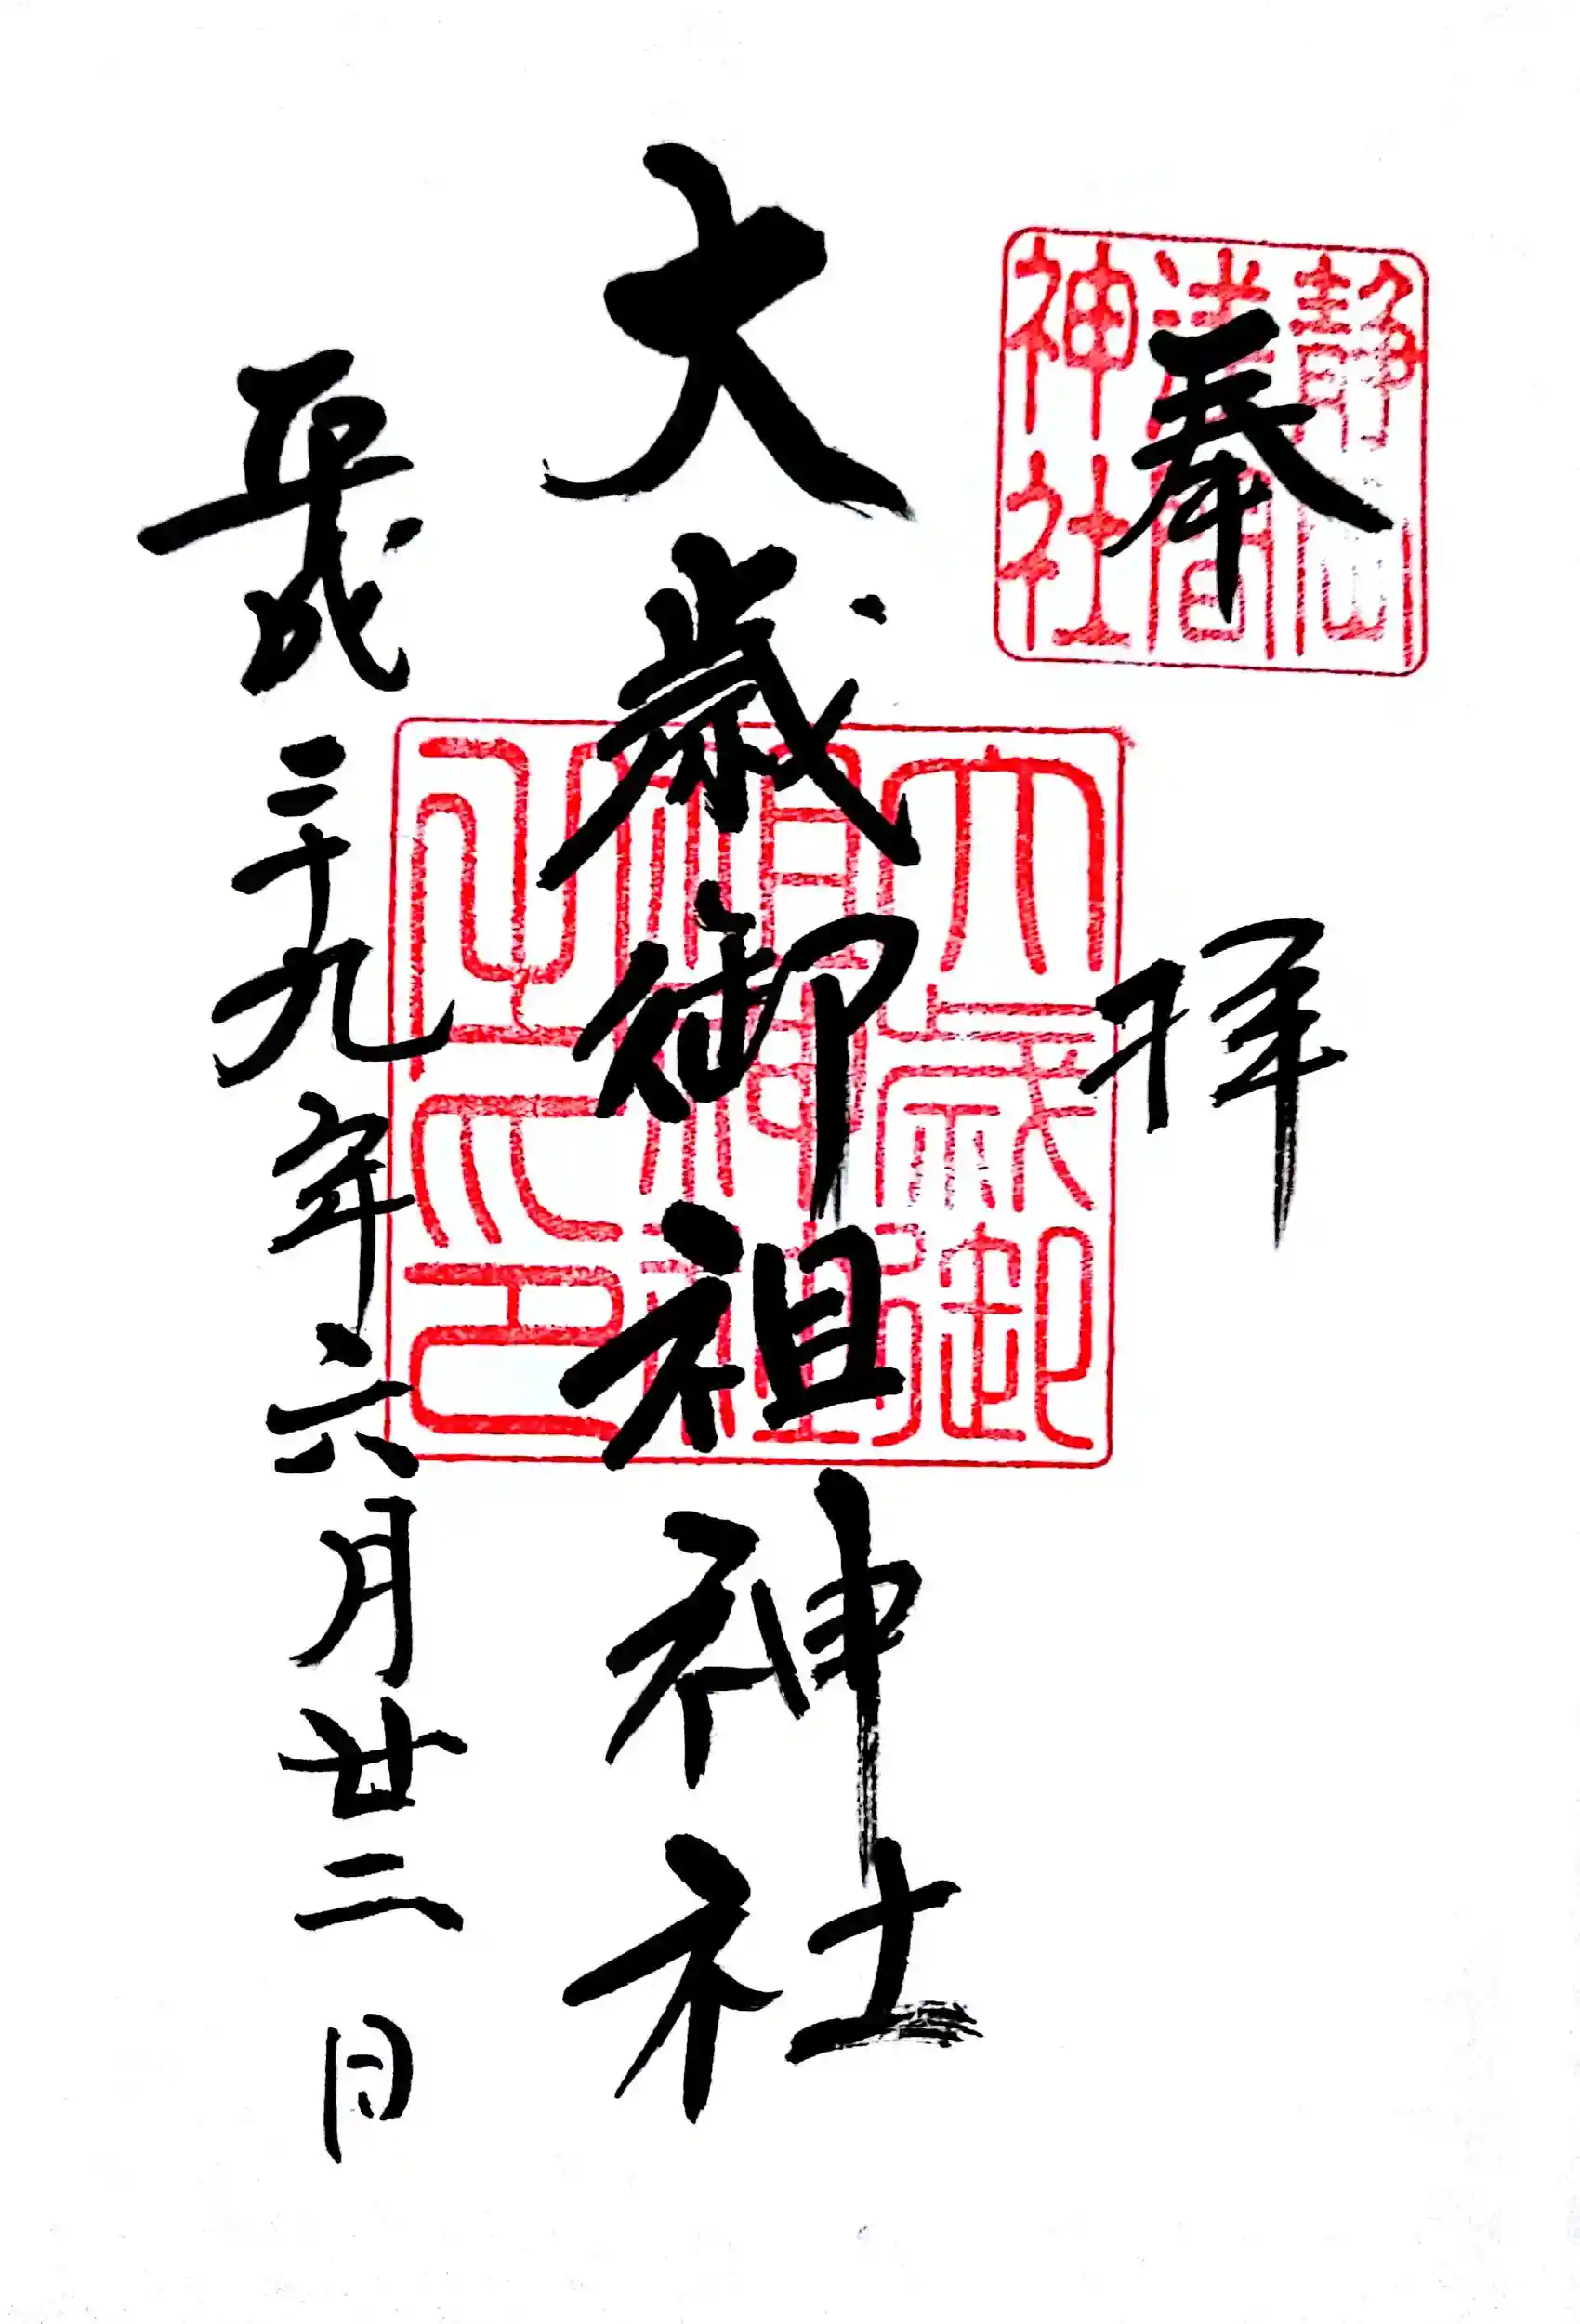 奉拝
靜岡
淺間
神社
大歳御祖神社
大歳御
祖神社
之印
平成二十九年六月廿二日